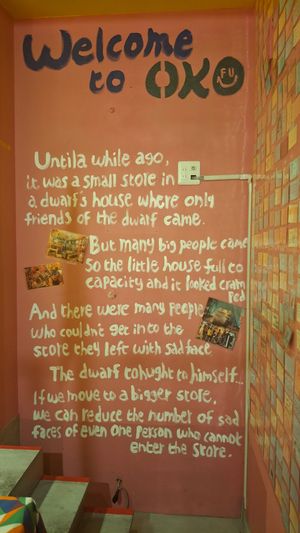 Welcome
to OXO
FU
A
Untila while ago,
it was a small store in
a dwarf's house where only
friends of the dwarf came.
But many big people came
So the little house full to
capacity and it looked cram
ped
And there were many people
who couldn't get in to the
store they left with sad face
The dwarf tohught to himself...
If we move to a bigger store,
we can reduce the number of sad
faces of even one person who cannot
enter the store.